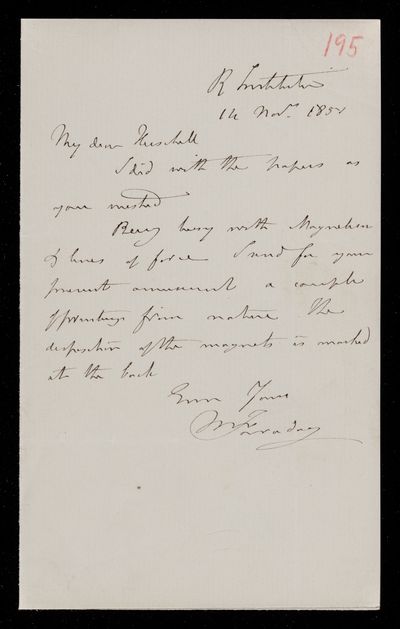 195
R Institution
14 Novr. 1851
My dear Herschell
I did with the papers as
you wished
Being busy with Magnetism
& lines of force I send for your
present amusement a couple
of printings from nature The
disposition of the magnets is marked
at the back
Ever Yours
M Faraday